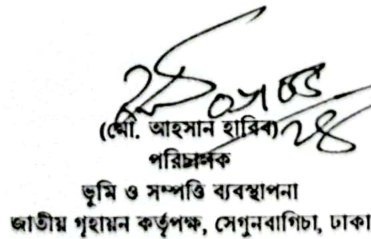 (মো. আহসান হাবিব)
পরিচালক
ভূমি ও সম্পত্তি ব্যবস্থাপনা
জাতীয় গৃহায়ন কর্তৃপক্ষ, সেগুনবাগিচা, ঢাকা